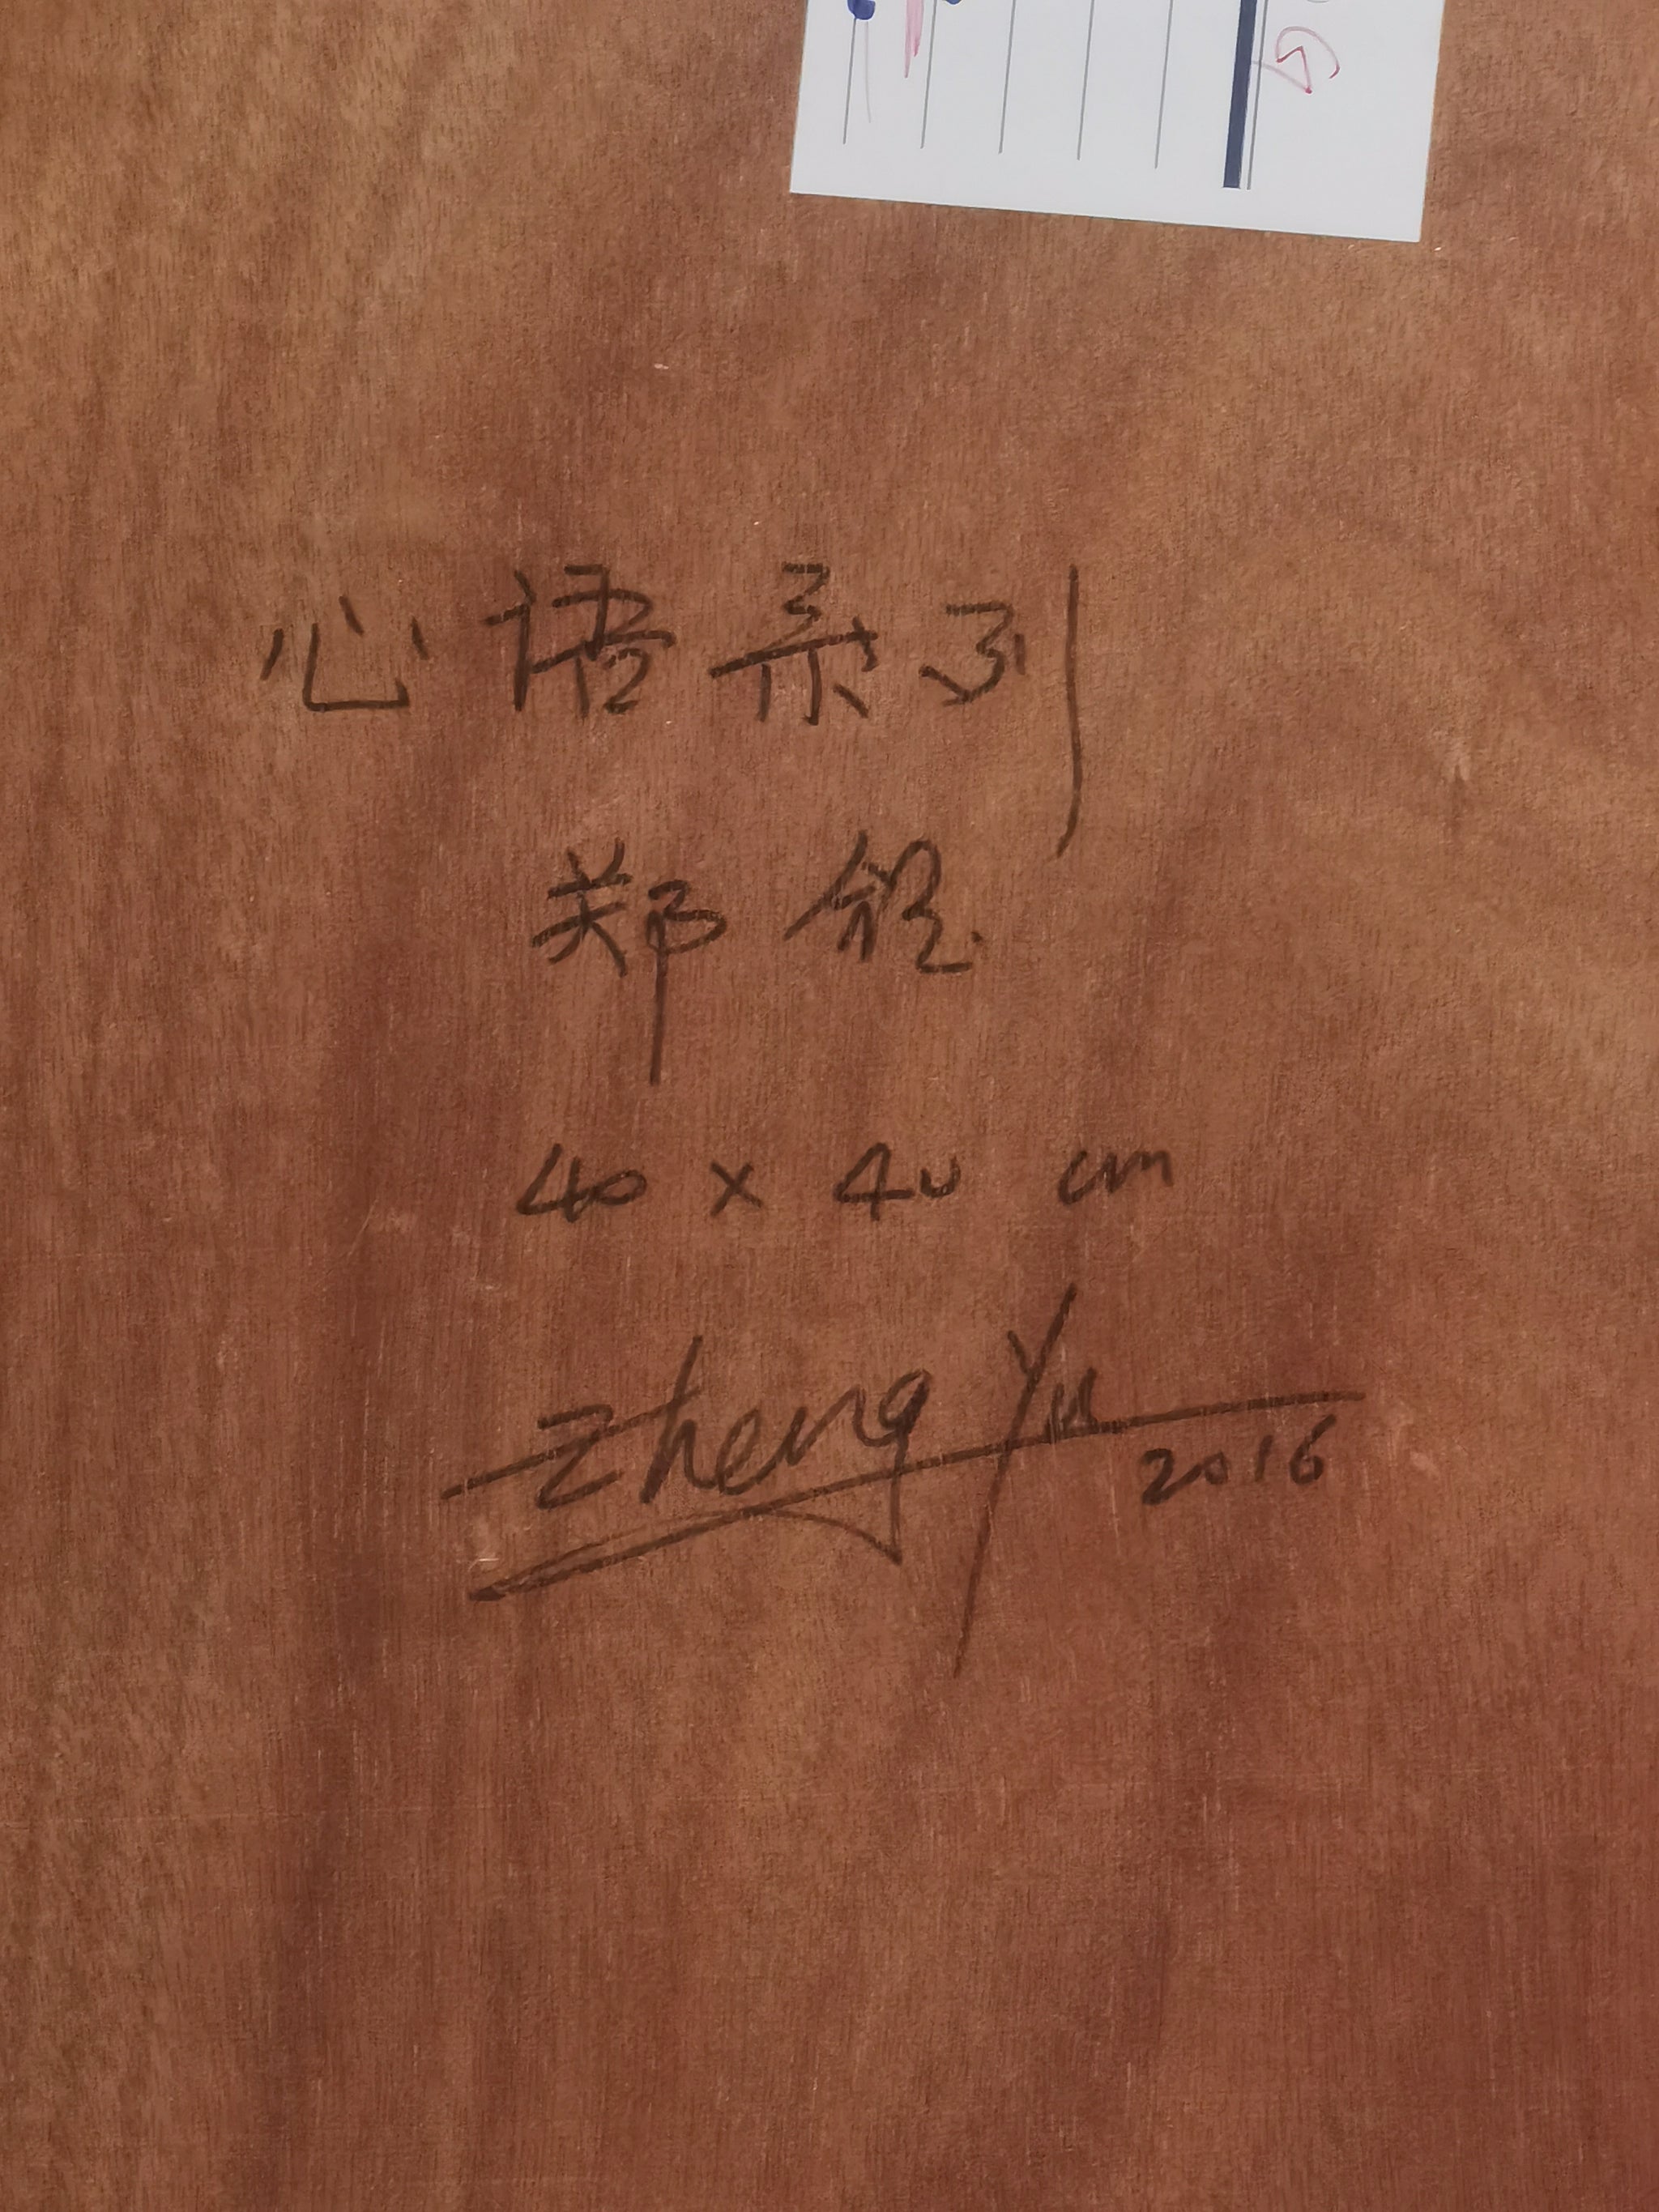 心语系列
郑钰
40 × 40 cm
Zheng Yu
2016